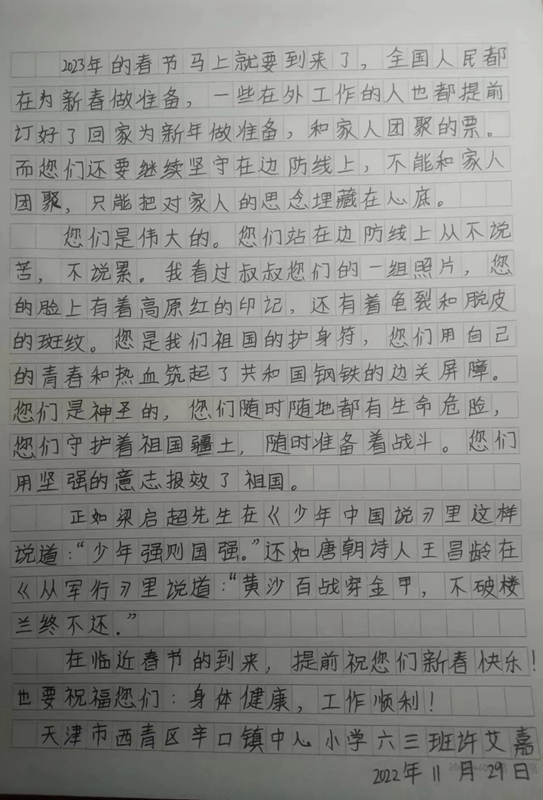 2023年的春节马上就要到来了，全国人民都
在为新春做准备，一些在外工作的人也都提前
订好了回家为新年做准备，和家人团聚的票。
而您们还要继续坚守在边防线上，不能和家人
团聚，只能把对家人的思念埋藏在心底。
您们是伟大的。您们站在边防线上从不说
苦，不说累。我看过叔叔您们的一组照片，您
的脸上有着高原红的印记，还有着龟裂和脱皮
的斑纹。您是我们祖国的护身符，您们用自己
的青春和热血筑起了共和国钢铁的边关屏障。
您们是神圣的，您们随时随地都有生命危险，
您们守护着祖国疆土，随时准备着战斗。您们
用坚强的意志报效了祖国。
正如梁启超先生在《少年中国说》里这样
说道：“少年强则国强。”还如唐朝诗人王昌龄在
《从军行》里说道：“黄沙百战穿金甲，不破楼
兰终不还。”
在临近春节的到来，提前祝您们新春快乐！
也要祝福您们：身体健康，工作顺利！
天津市西青区辛口镇中心小学六三班许艾嘉
2022年11月29日